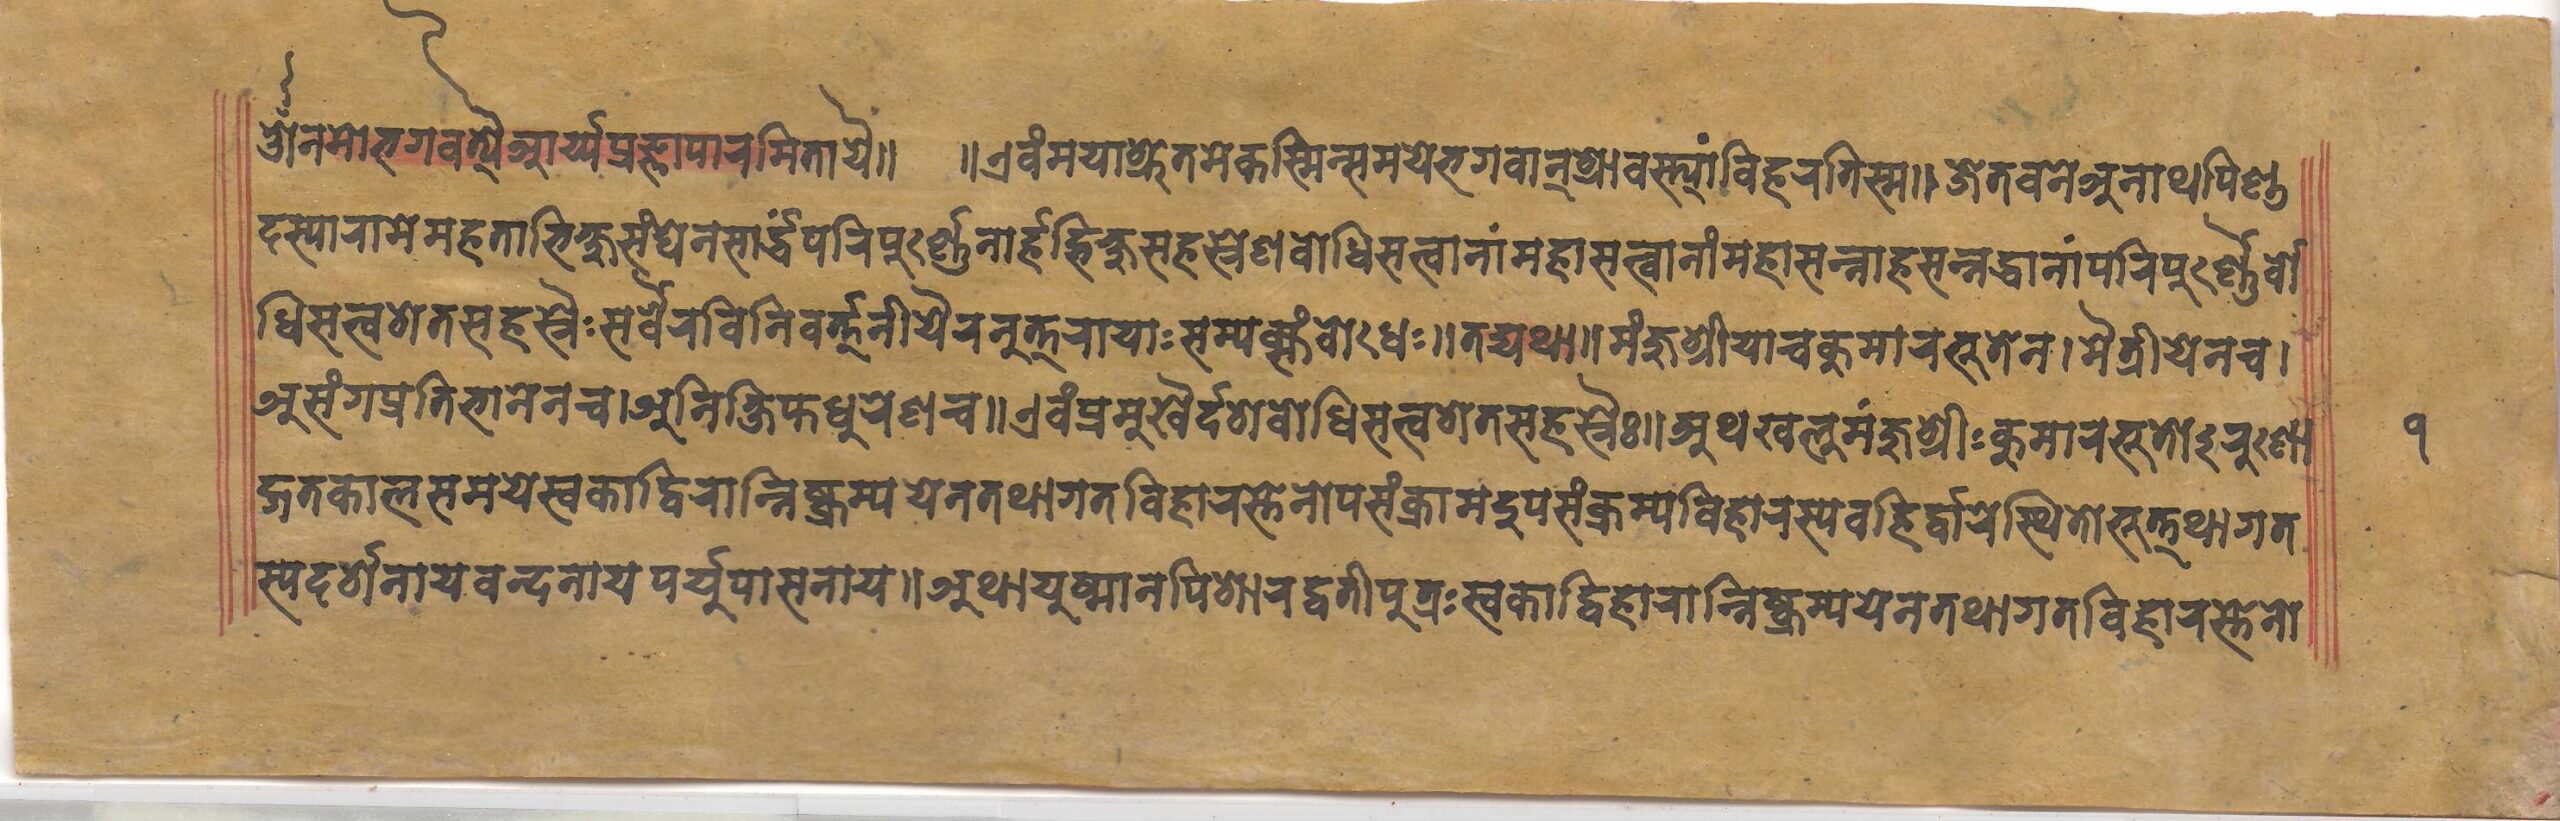 ॐनमोभगवत्यैआर्य्यप्रज्ञापारमितायै॥ ॥एवंमयाश्रुतमेकस्मिन्समयेभगवान्श्रावस्त्यांविहरतिस्म॥जेतवनेअनाथपिण्ड
दस्यारामेमहताभिक्षुसंघेनसार्द्धंपरिपूर्ण्णेनार्हद्भिक्षुसहस्रेणबोधिसत्वानांमहासत्वानांमहासन्नाहसन्नद्धानांपरिपूर्ण्णैर्बो
धिसत्वशतसहस्रैःसर्वैरविनिवर्त्तनीयैरनुत्तरायाःसम्यक्संबोधेः॥तद्यथा॥मंजुश्रीयाचकुमारभूतेन।मैत्रीयेनच।
असंगप्रतिभानेनच।अनिक्षिप्तधुरेणच॥एवंप्रमुखैर्दशबोधिसत्वशतसहस्रैः॥अथखलुमंजुश्रीःकुमारभूतोऽरुणो
द्गतकालसमयेस्वकाद्विरान्निष्क्रम्ययेनतथागतविहारस्तेनोपसंक्रामदुपसंक्रम्यविहारस्यवहिर्द्वारेस्थितोभूत्तथागत
स्यदर्शनायवन्दनायपर्युपासनाय॥अथायुष्मानपिशारद्वतीपुत्रःस्वकाद्विहारान्निष्क्रम्ययेनतथागतविहारस्तेनो
१